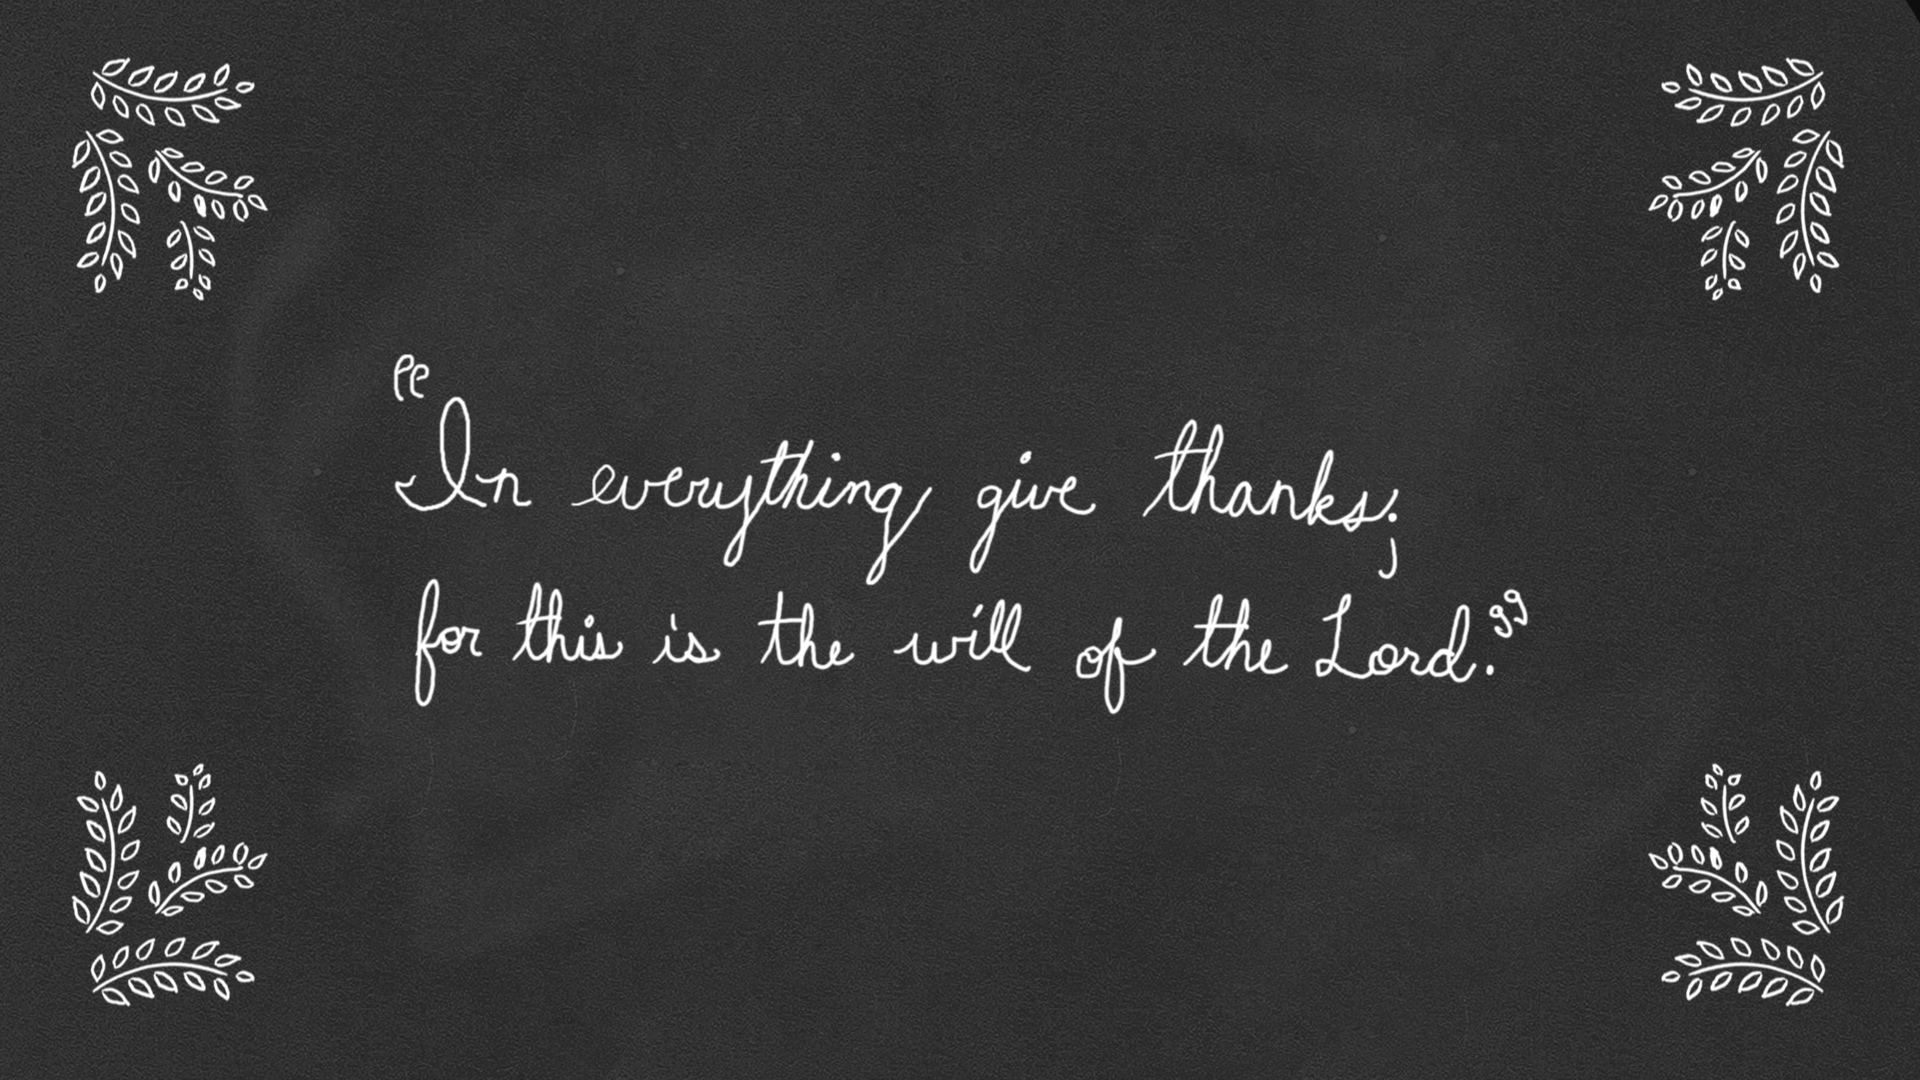 “In everything give thanks;
for this is the will of the Lord.”